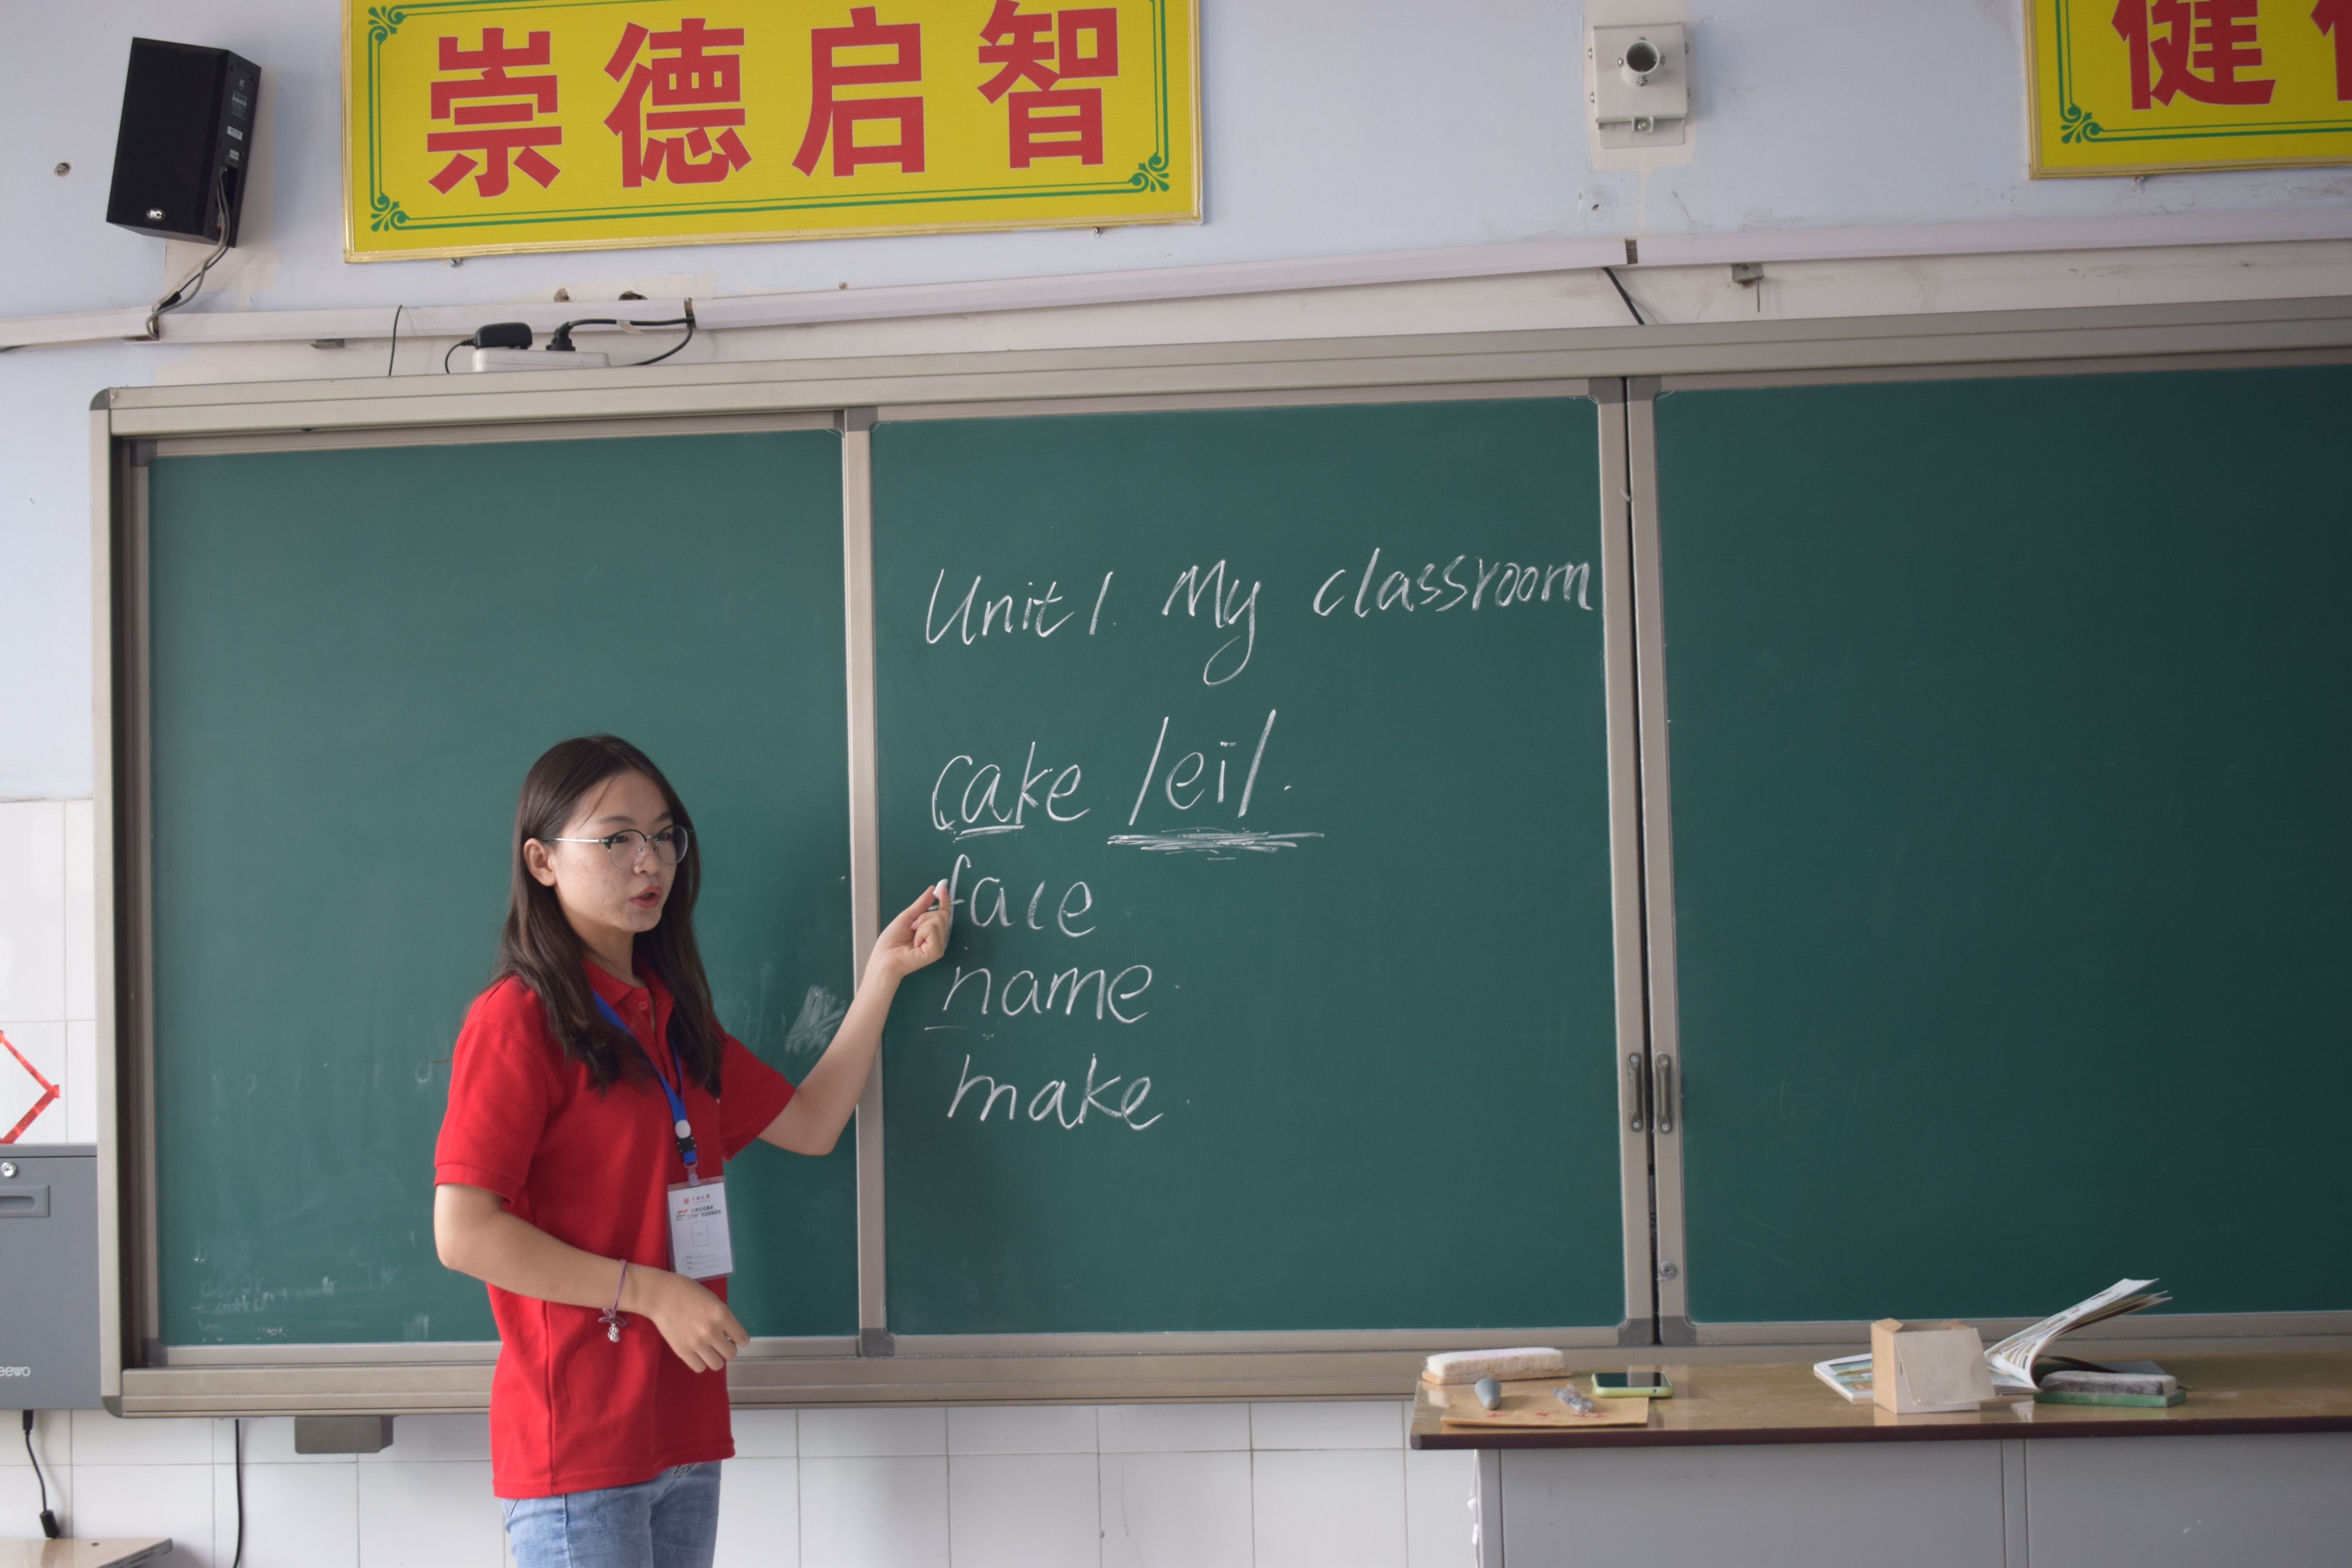 崇德启智
健
Unit 1. My classroom
cake /ei/.
face
name
make